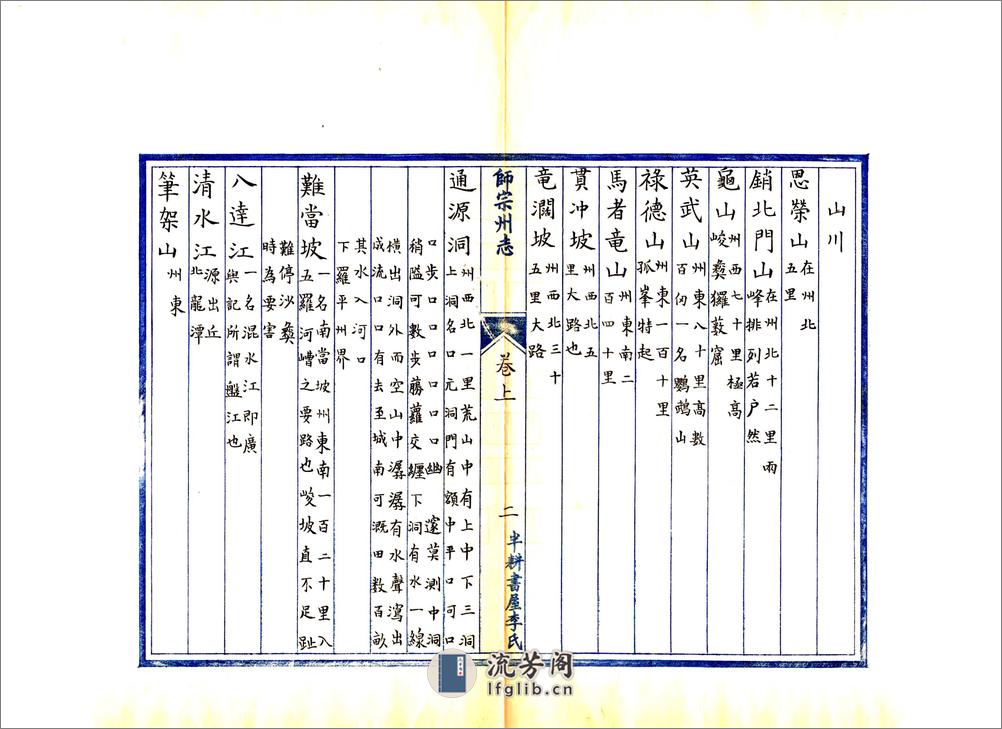 山川
思榮山 在州北
五里
銷北門山 在州北十二里雨
峰排列若户然
龜山 州西七十里極高
峻彝玀蓺窟
英武山 州東八十里高数
百仞一名鸚鵡山
祿德山 州東一百十里
孤峯特起
馬者竜山 州東南二
百四十里
貫冲坡 州西北五
里大路也
竜濶坡 州西北三十
五里大路
師宗州志 卷上 二 半耕書屋李氏
通源洞 州西北一里荒山中有上中下三洞
上洞名口元洞門有額中平口可口
口步口口口口口幽邃莫測中洞
稍隘可數步藤蘿交纒下洞有水一線
橫出洞外而空山中潺潺有水聲瀉出
成流口口有去至城南可溉田数百畝
其水入河口
下羅平州界
難當坡 一名南當坡州東南一百二十里入
五羅河嶆之要路也峻坡直不足趾
難停沙彝
時為要害
八達江 一名混水江即廣
輿記所謂盤江也
清水江 源出丘
北龍潭
筆架山 州東
流芳阁
lfglib.cn